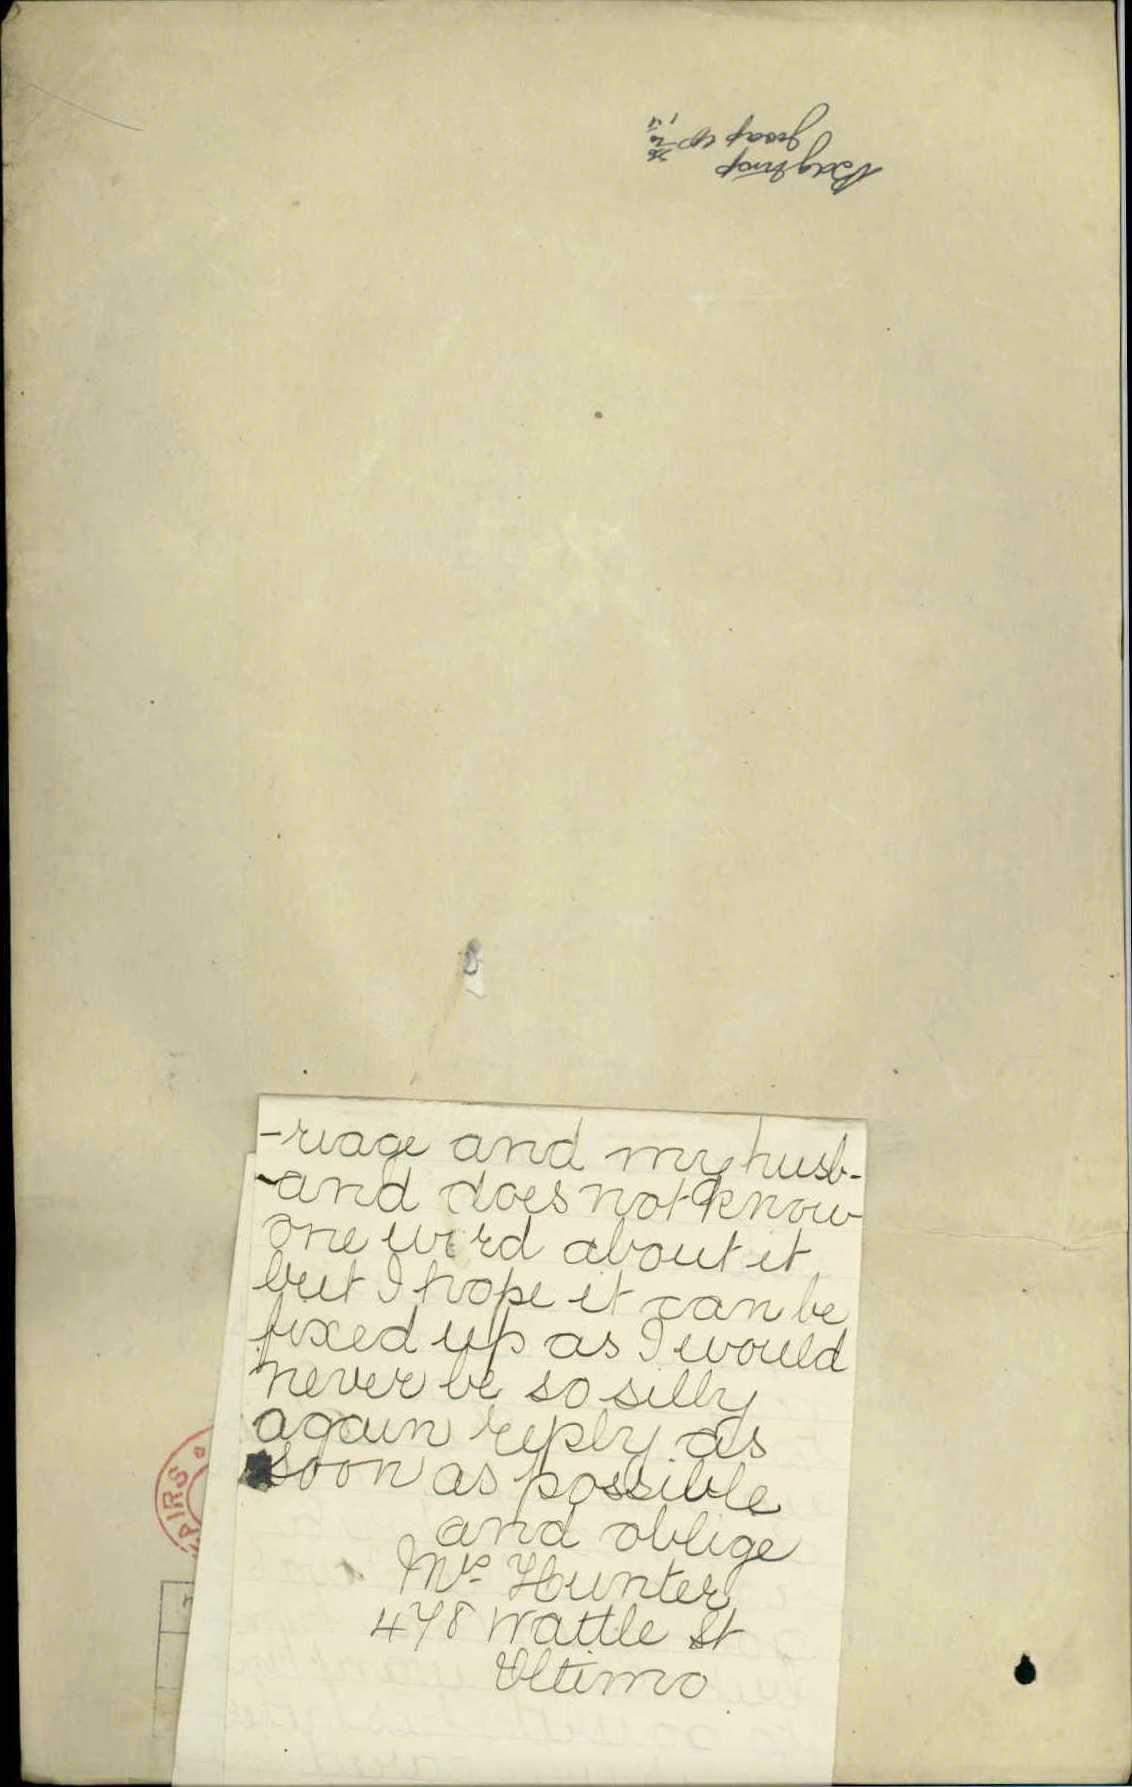 -riage and my husb-
-and does not know
one word about it
but I hope it can be
fixed up as I would
never be so silly
again reply as
soon as possible
and oblige
Mrs. Hunter
478 Wattle St
Ultimo